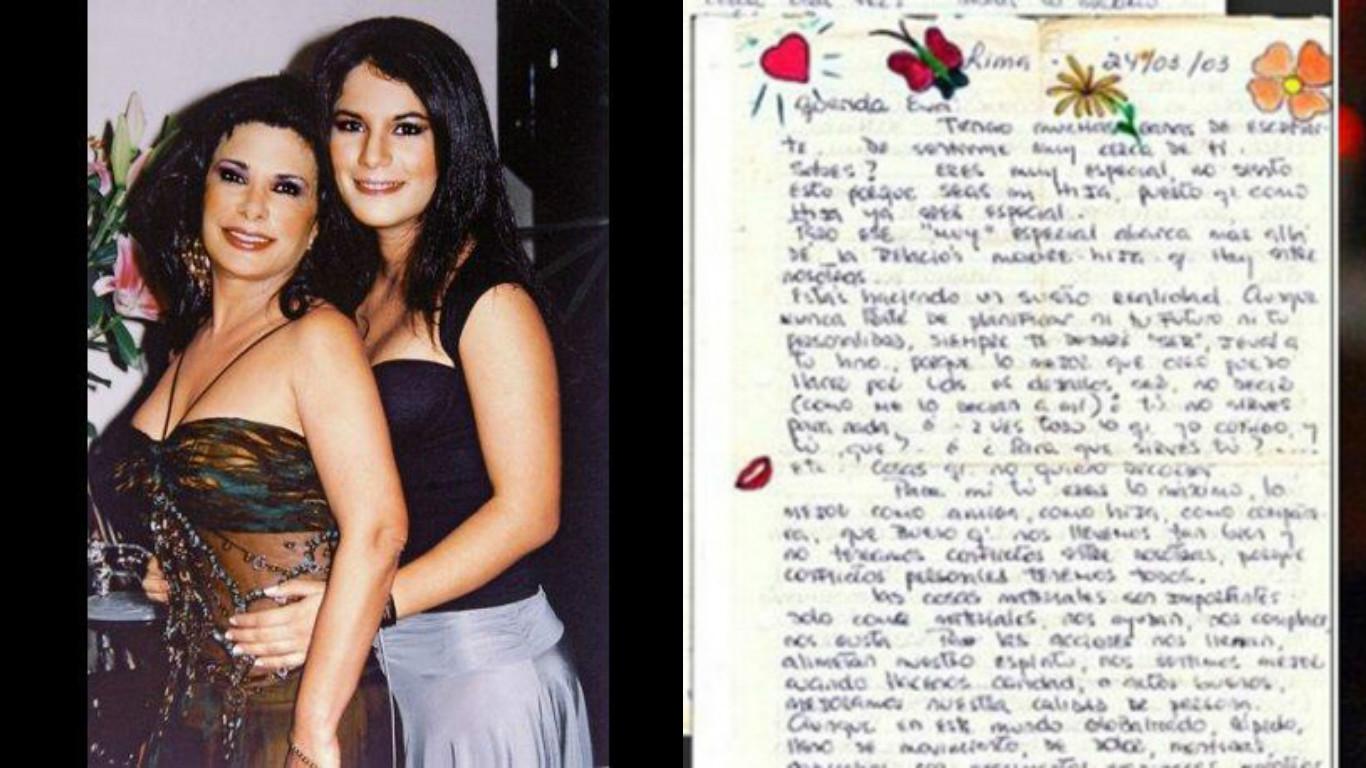 Lima - 24/03/03
Querida Eva:
Tengo muchas ganas de escribir-
te. De sentirme muy cerca de ti.
Sabes? ERES muy especial, no siento
Esto porque seas mi Hija, puesto q' como
Hija ya eres especial.
Pero ese "muy" especial abarca más allá
DE la Relación madre hija q' Hay entre
nosotras.
Estás haciendo un sueño realidad. Aunque
nunca traté de planificar ni tu futuro ni tu
personalidad, siempre te dejaré "SER", igual a
tu hno, porque lo mejor que creo puedo
Hacer por Uds. es dejarlos ser, no decir
(como me lo decían a mí): tú no sirves
para nada, ó - ¿ves todo lo q' yo consigo, y
tú, qué? ó ¿Para que sirves tú?....
Etc. Cosas q' no quiero recordar
Para mí tú eres lo máximo, lo
mejor como amiga, como hija, como compañe-
ra, que bueno q' nos llevemos tan bien y
no tengamos conflictos entre nosotras, porque
conflictos personales tenemos todos.
Las cosas materiales son importantes
solo como materiales, nos ayudan, nos complace,
nos gusta. Pero las acciones nos llenan,
alimentan nuestro espíritu, nos sentimos mejor
cuando Hacemos caridad, o actos buenos,
mejoramos nuestra calidad de persona.
Aunque en este mundo globalizado, rápido,
lleno de movimiento, de dolor, mentiras,